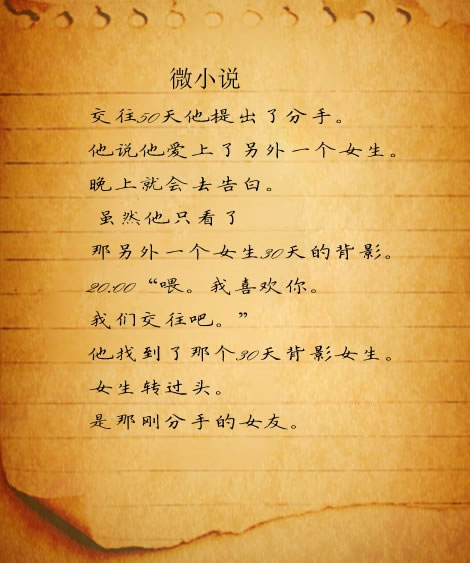 微小说
交往50天他提出了分手。
他说他爱上了另外一个女生。
晚上就会去告白。
虽然他只看了
那另外一个女生30天的背影。
20:00“喂。我喜欢你。
我们交往吧。”
他找到了那个30天背影女生。
女生转过头。
是那刚分手的女友。